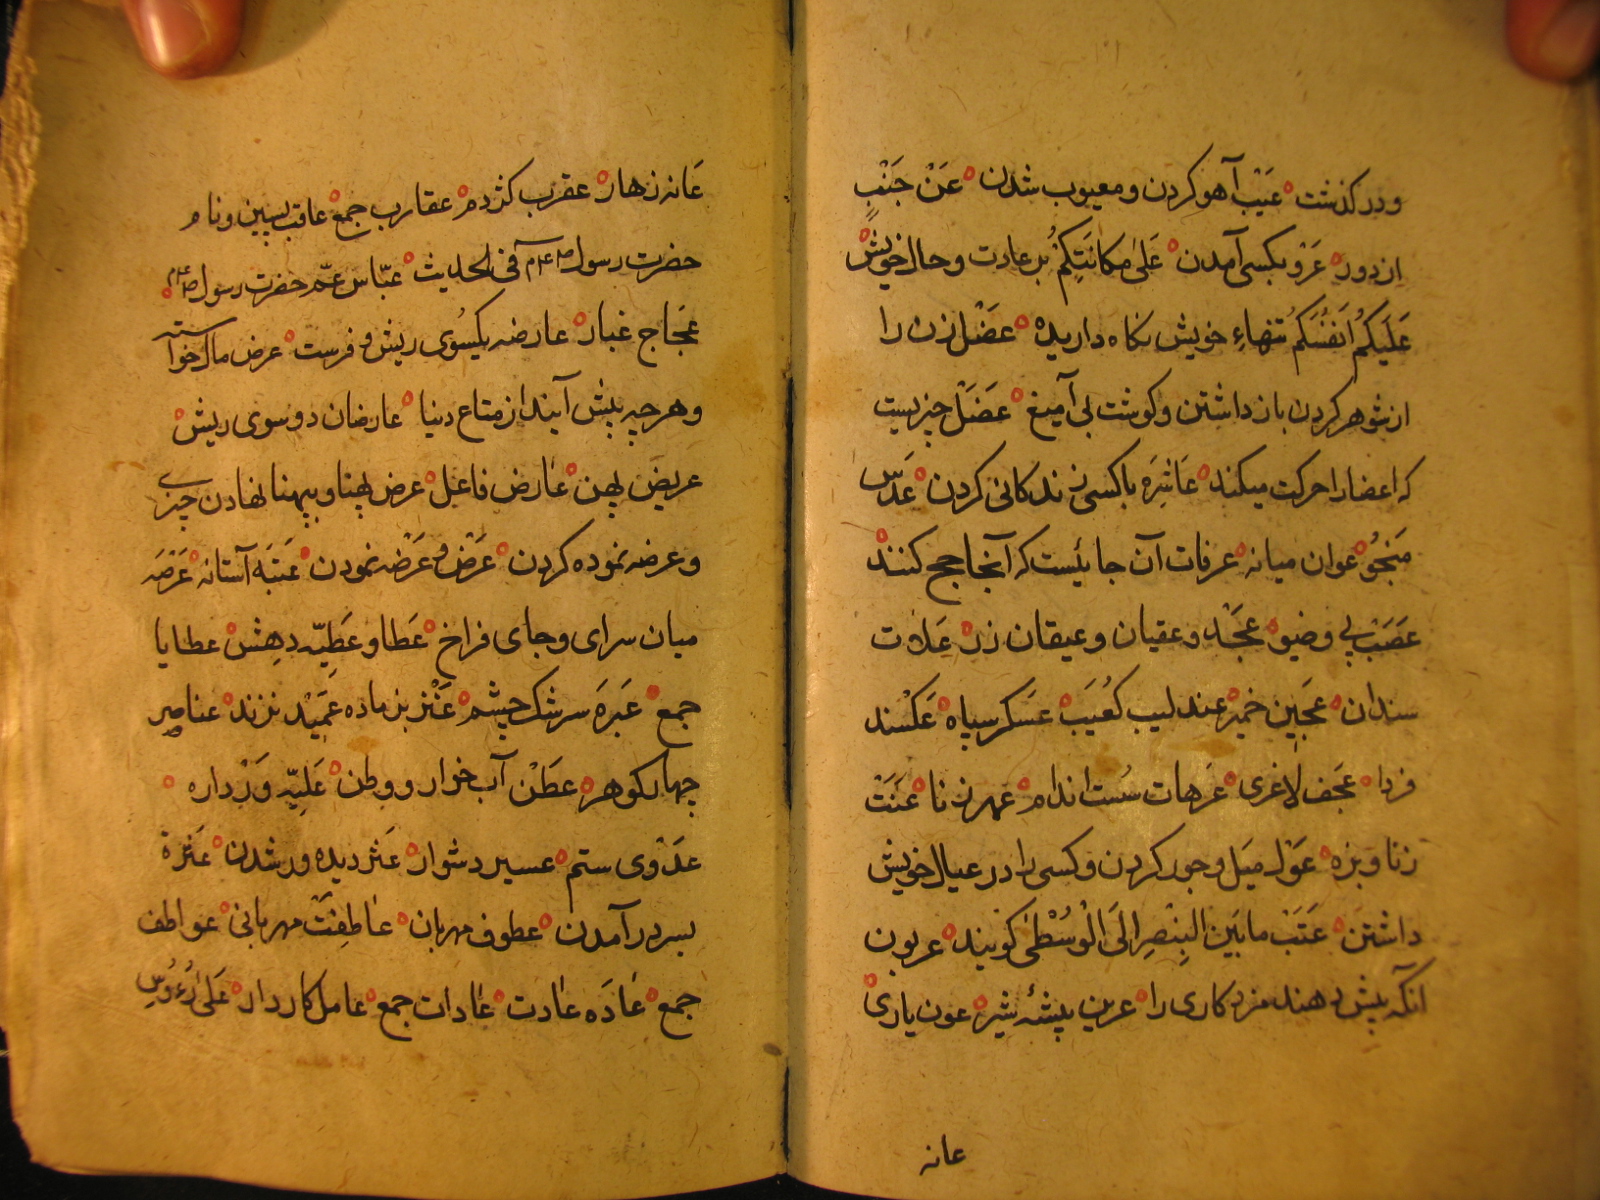 و در کذشت عَیْب آهو کردن و معیوب شدن عَنْ جَنْبٍ
از دور عَزْو بکسی آمدن عَلیٰ مکانَتِکُمْ بر عادت و حال خویش
عَلَیکُمْ اَنفُسَکُمْ تنهاءِ خویش نکاه دارید عَضْل زن را
از شوهر کردن باز داشتن و کوشت بی آمیغ عَضَل چیزیست
که اعضا را حرکت میکند عَاشَرَه با کسی زندکانی کردن عَدَس
مَنجُو عوان میانه عرفات آن جائیست که آنجا حج کنند
عَصَب پی و ضیو عجَد و عقیان و عیقان زر عَلات
سندان عَجِین خمیر عندلیب کُعَیب عَسکر سپاه عَکْسند
فردا عَجَف لاغری عَرهات سُست اندام عهر زنا عَنَتْ
زنا و بزه عَوْل میَل و جور کردن و کسی را در عیال خویش
داشتن عَتَبْ مابَین البِنْصِر اِلَی الْوُسْطٰی کویند عربون
آنکه پیش دهند مزد کاری را عرین پیشهٔ شیر عون یاری
عانه
عَانه زهار عقرب کژدم عقارب جمع عاقب پسین و نام
حضرت رسول صلعم آ فی الحدیث عبّاس عمّ حضرت رسول صلعم
عَجَاج غبار عارضه یکسُوی ریش و فرست عرض مال و خواسته
و هر چه پیش آیند از متاع دنیا عارضان دو سوی ریش
عریض پهن عٰارض فاعل عرض پهنا و بپهنا نهادن چیزی
و عرضه نموده کردن عَرْض و عَرْضه نمودن عَتَبَه آستانه عَرْصَه
میان سرای و جای فراخ عَطا و عَطِیّه دِهِش عطایا
جمع عَبَرَه سرشک چشم عَنْز بز ماده عَمَیْد نزند عناصر
چهار کوهر عطَنْ آب خوار و وطن عَلِیّه وَرْداره
عَدْوی ستم عسیر دشوار عثر دیده ور شدن عَثرَة
بسر در آمدن عطوف مهربان عٰاطِفَتْ مهربانی عواطف
جمع عٰادَه عٰادت عٰادات جمع عامل کاردار عَلیٰ رُءُوسِ